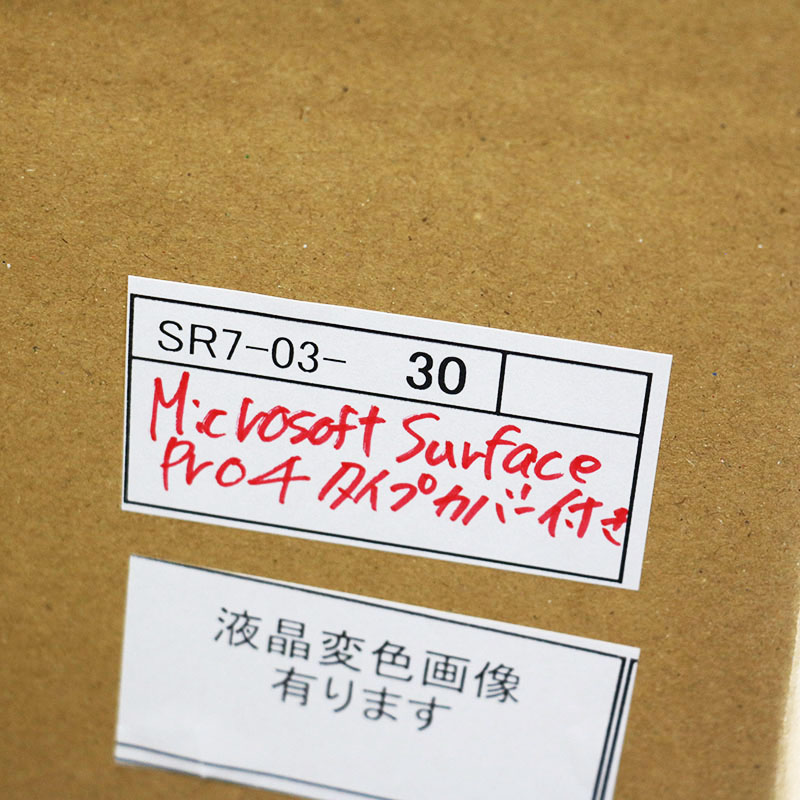 SR7-03- 30
Microsoft Surface
Pro4 タイプカバー付き
液晶変色画像
有ります